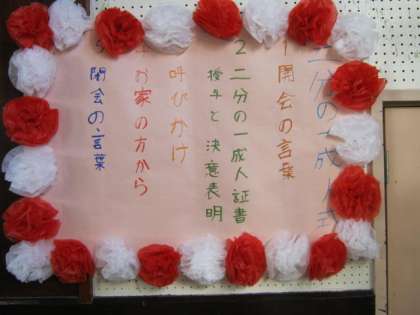 二分の一成人式
1 開会の言葉
2 二分の一成人証書
授与と決意表明
呼びかけ
お家の方から
閉会の言葉